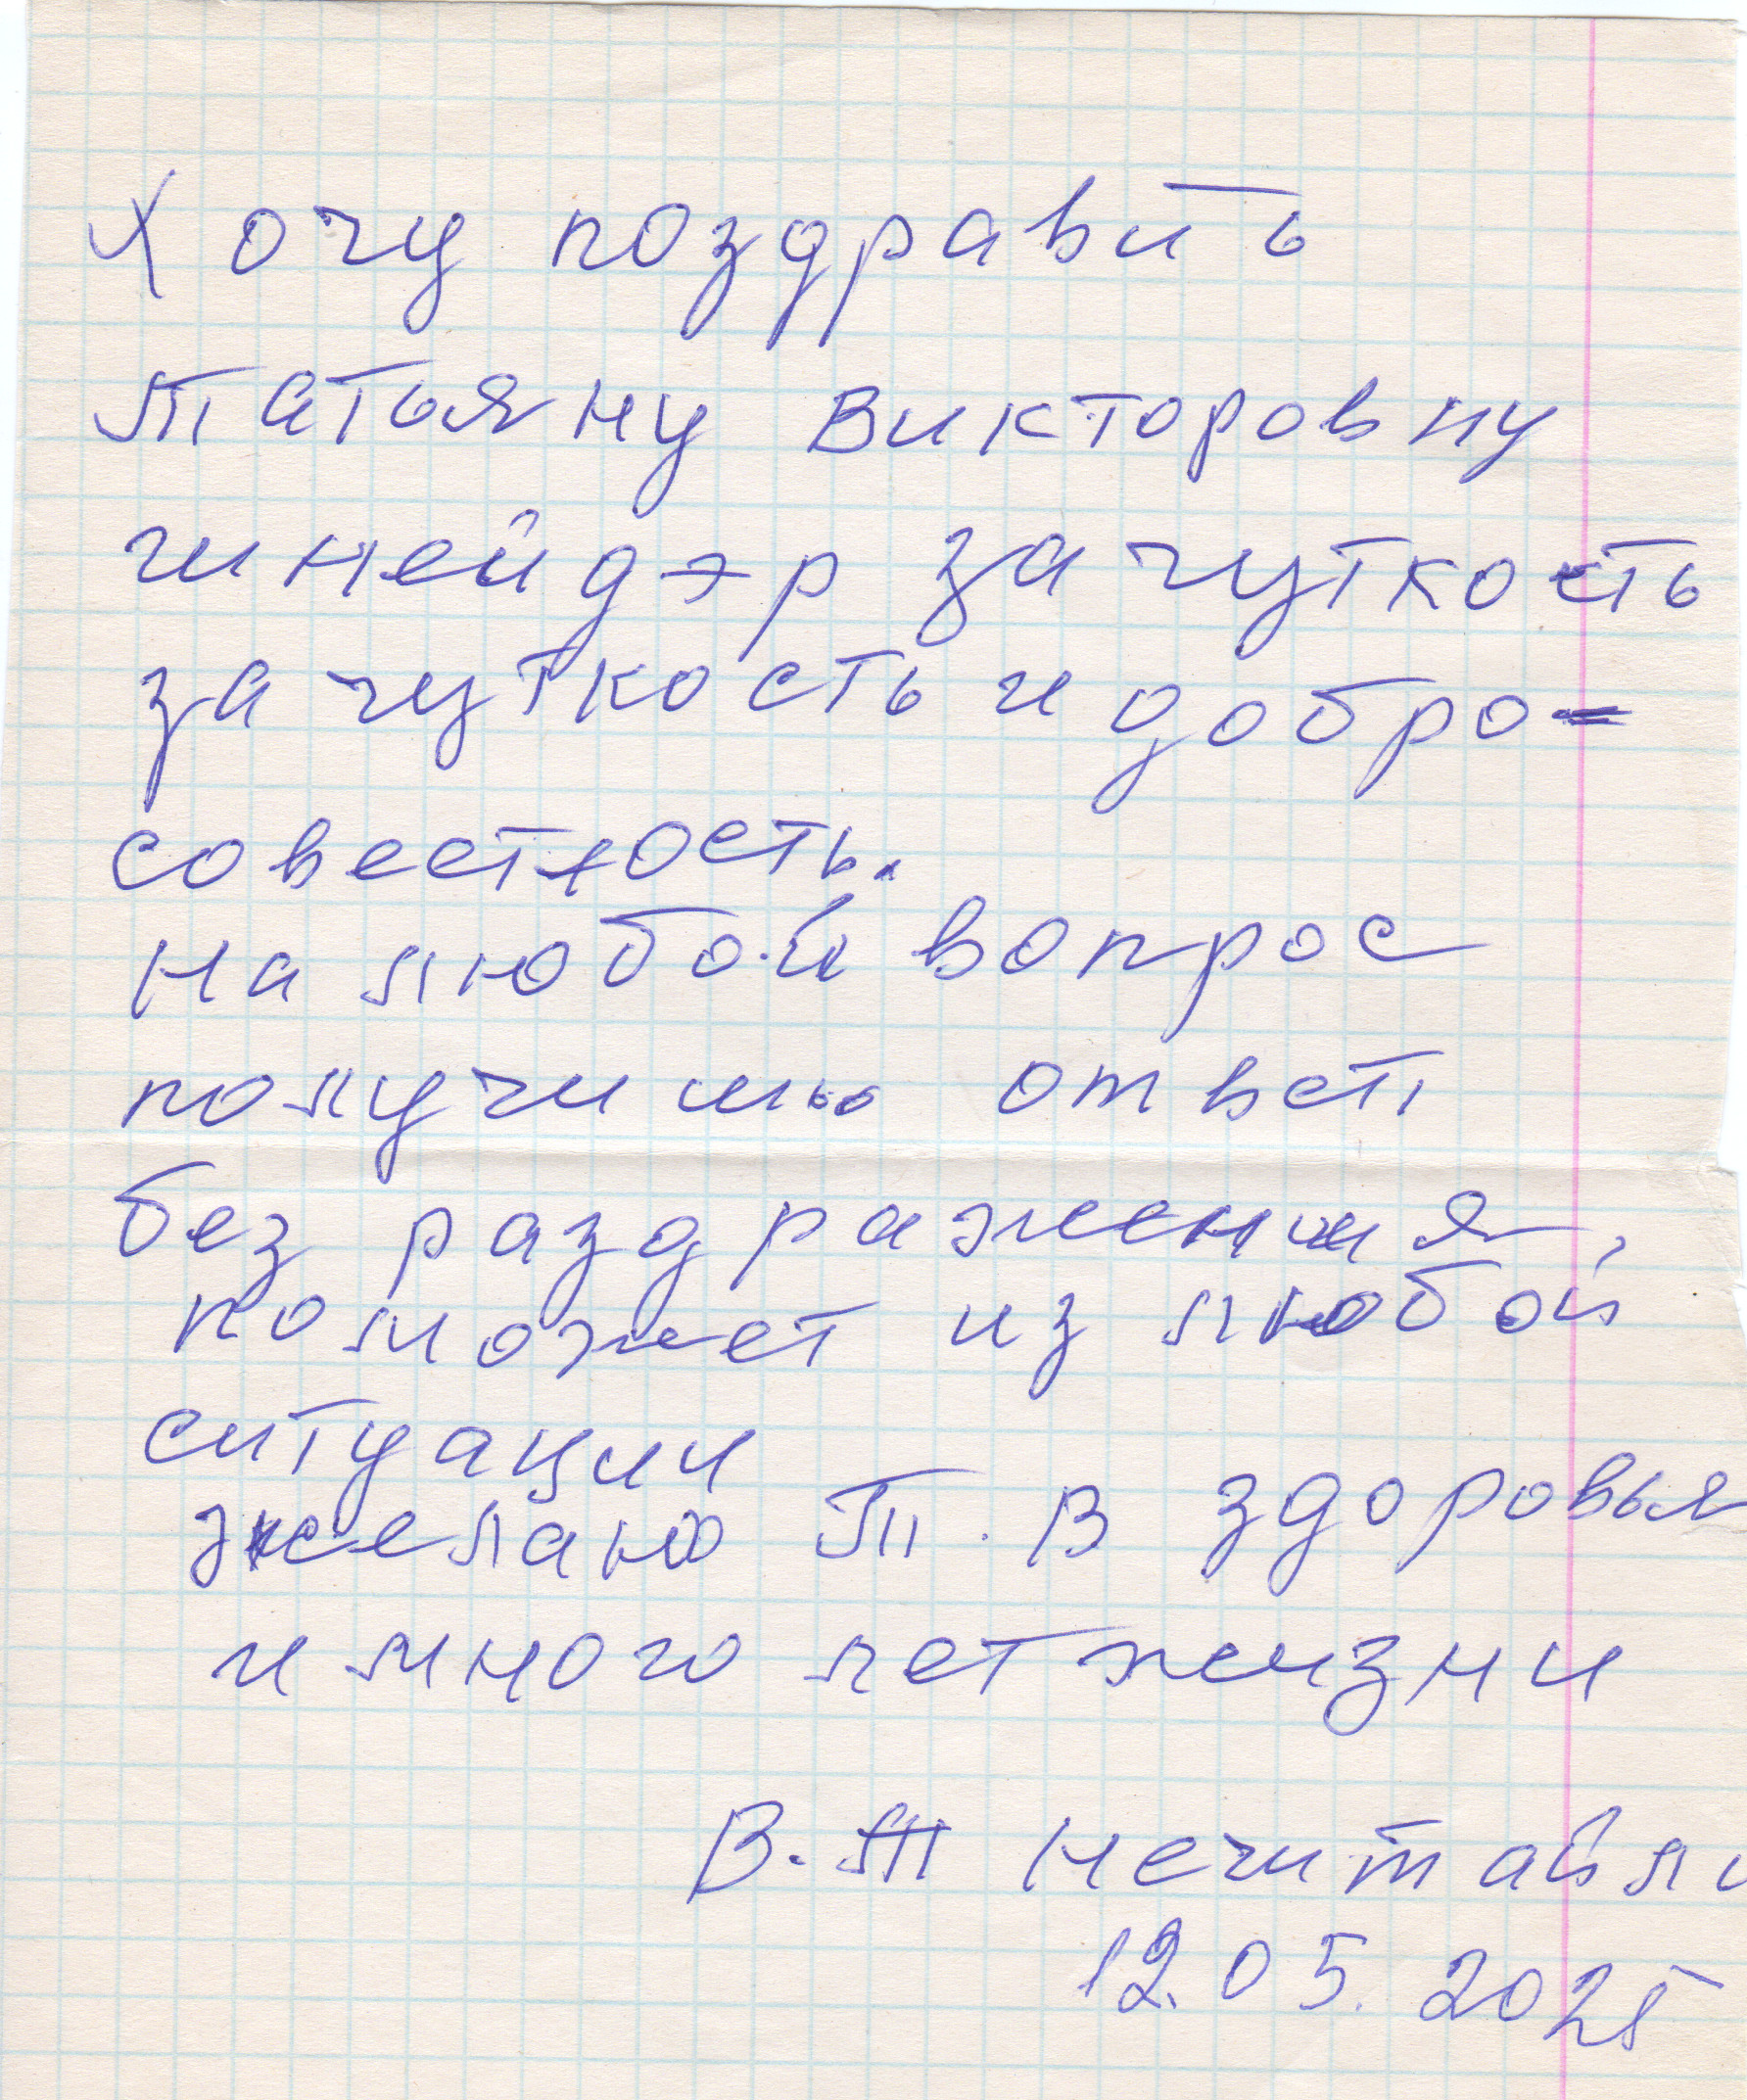 Хочу поздравить
Татьяну Викторовну
Шнейдэр за чуткость
за чуткость и добро-
совестность.
на любой вопрос
получишь ответ
без раздражения,
поможет из любой
ситуации
желаю Т. В здоровья
и много лет жизни
В. Т
12.05.2025